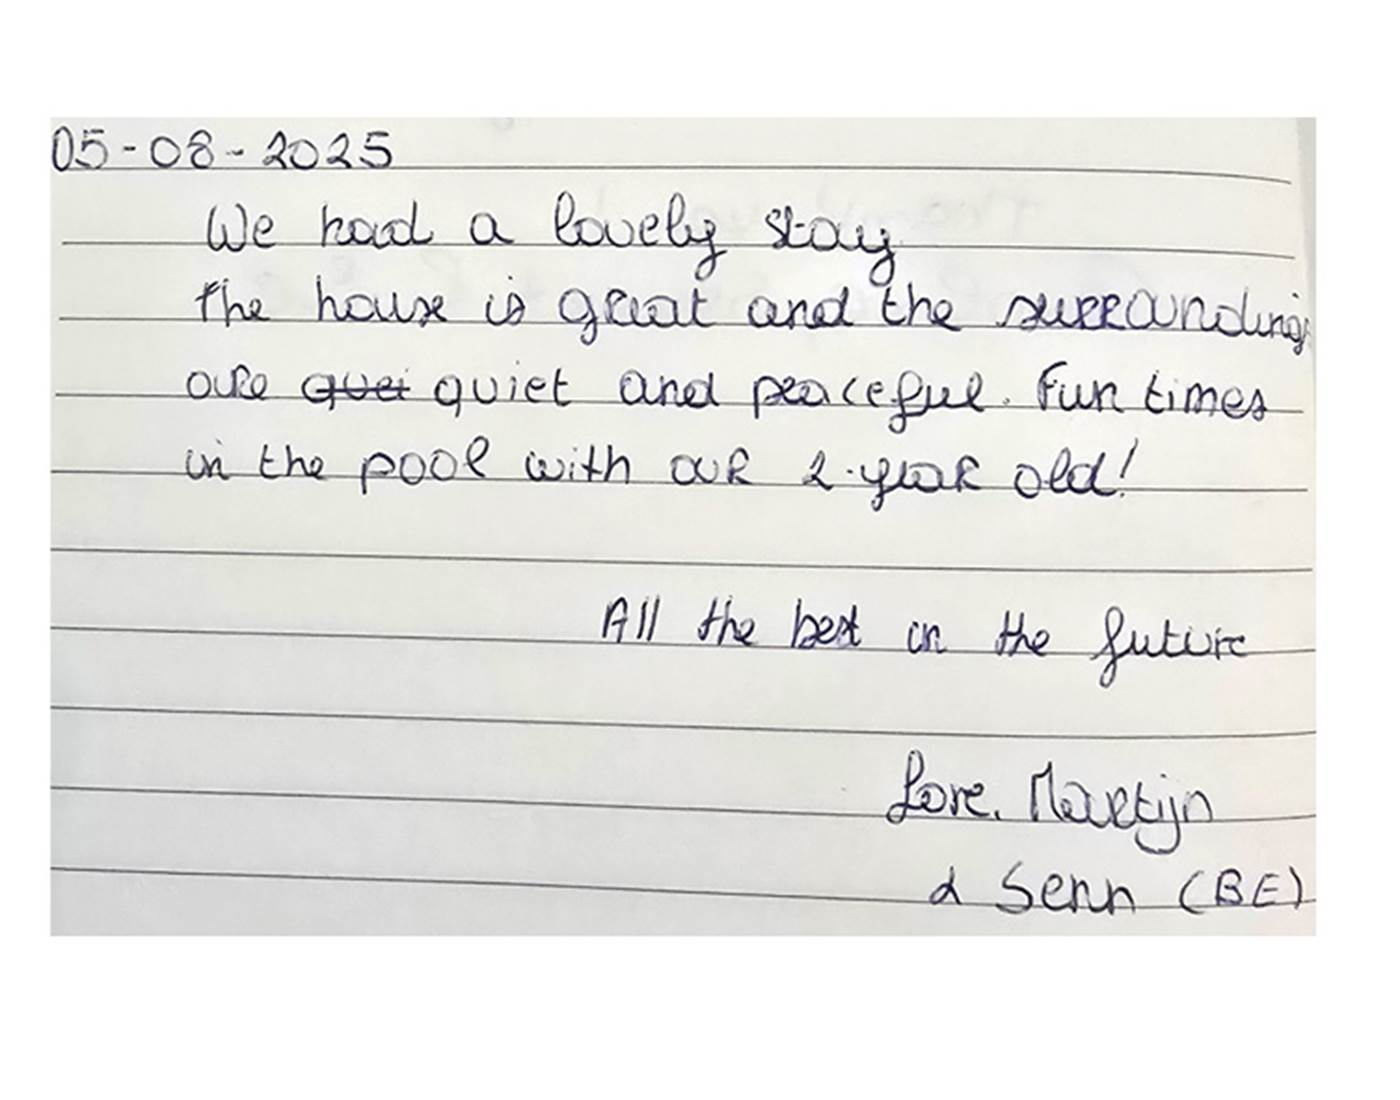 05-08-2025
We had a lovely stay
The house is great and the surroundings
are quei quiet and peaceful. Fun times
in the pool with our 2-year old!
All the best in the future
Love, Martijn
& Senn (BE)